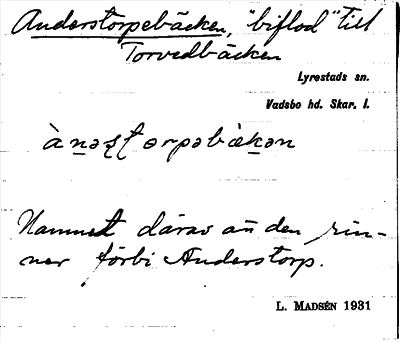 Anderstorpebäcken, "biflod" till
Torvedbäcken
Lyrestads sn.
Vadsbo hd. Skar. l.
Namnet därav att den rin-
ner förbi Anderstorp.
L. MADSÉN 1931